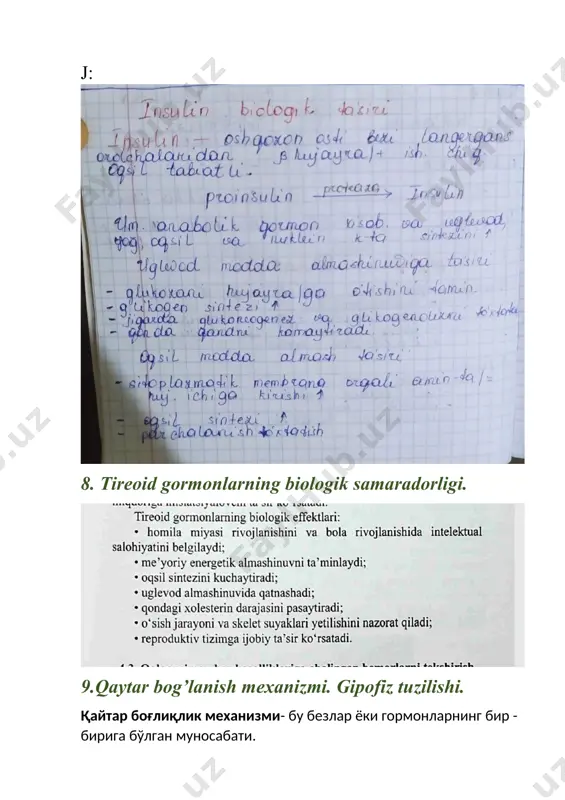 J:
Insulin biologik tasiri
Insulin - oshqozon osti bezi langergans
orolchalaridan β hujayra/+ ish. chiq.
Oqsil tabiatli.
proinsulin proteaza → Insulin
Um. anabolik gormon xisob. va uglevod,
yog', oqsil va nuklein k-ta sintezini ↑
Uglevod modda almashinuviga tasiri
- glukozani hujayra/ga o'tishini tamin
- glikogen sintezi ↑
- jigarda glukoneogenez va glikogenolizni to'xtata
- qonda qandni kamaytiradi
Oqsil modda almash tasiri
- sitoplazmatik membrana orqali amin-ta/=
huj. ichiga kirishi ↑
- oqsil sintezi ↑
- parchalanish to'xtatish
8. Tireoid gormonlarning biologik samaradorligi.
Tireoid gormonlarning biologik effektlari:
• homila miyasi rivojlanishini va bola rivojlanishida intelektual
salohiyatini belgilaydi;
• me'yoriy energetik almashinuvni ta'minlaydi;
• oqsil sintezini kuchaytiradi;
• uglevod almashinuvida qatnashadi;
• qondagi xolesterin darajasini pasaytiradi;
• o'sish jarayoni va skelet suyaklari yetilishini nazorat qiladi;
• reproduktiv tizimga ijobiy ta'sir ko'rsatadi.
9.Qaytar bog'lanish mexanizmi. Gipofiz tuzilishi.
Қайтар боғлиқлик механизми- бу безлар ёки гормонларнинг бир -
бирига бўлган муносабати.
FaylHub.uz